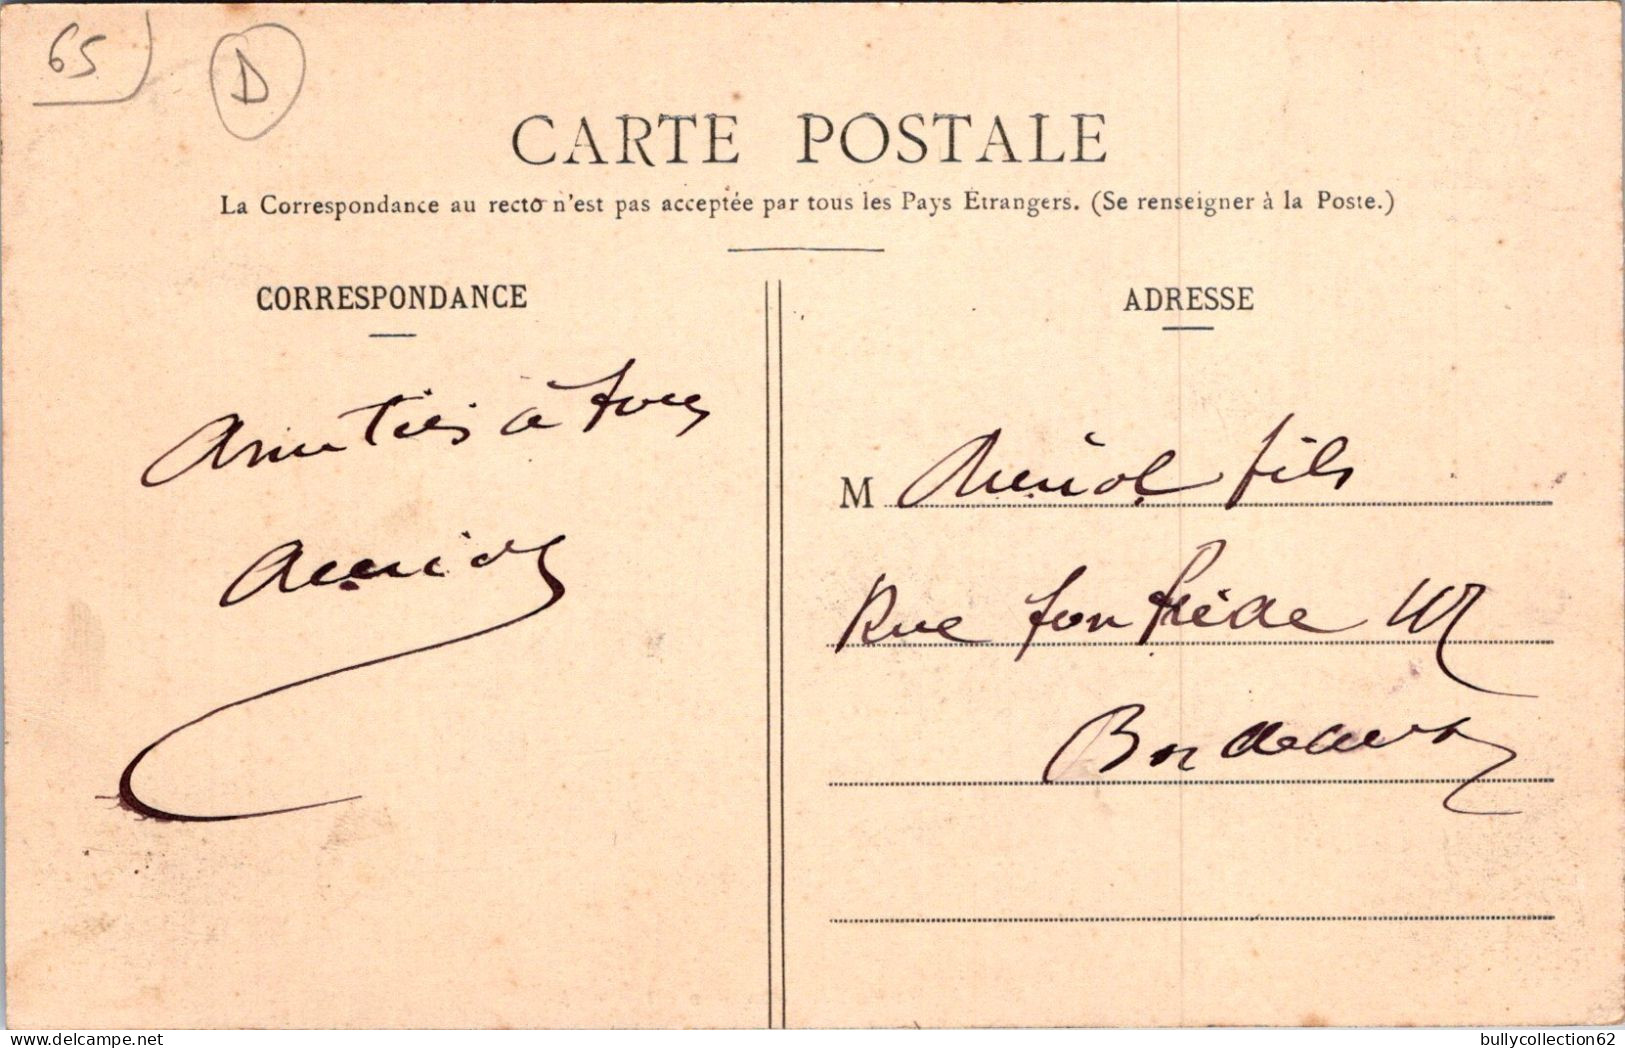 65
D
CARTE POSTALE
La Correspondance au recto n'est pas acceptée par tous les Pays Etrangers. (Se renseigner à la Poste.)
CORRESPONDANCE
ADRESSE
Amitiés à tous
M fils
Rue fonfrède
Bordeaux
delcampe.net
bullycollection62